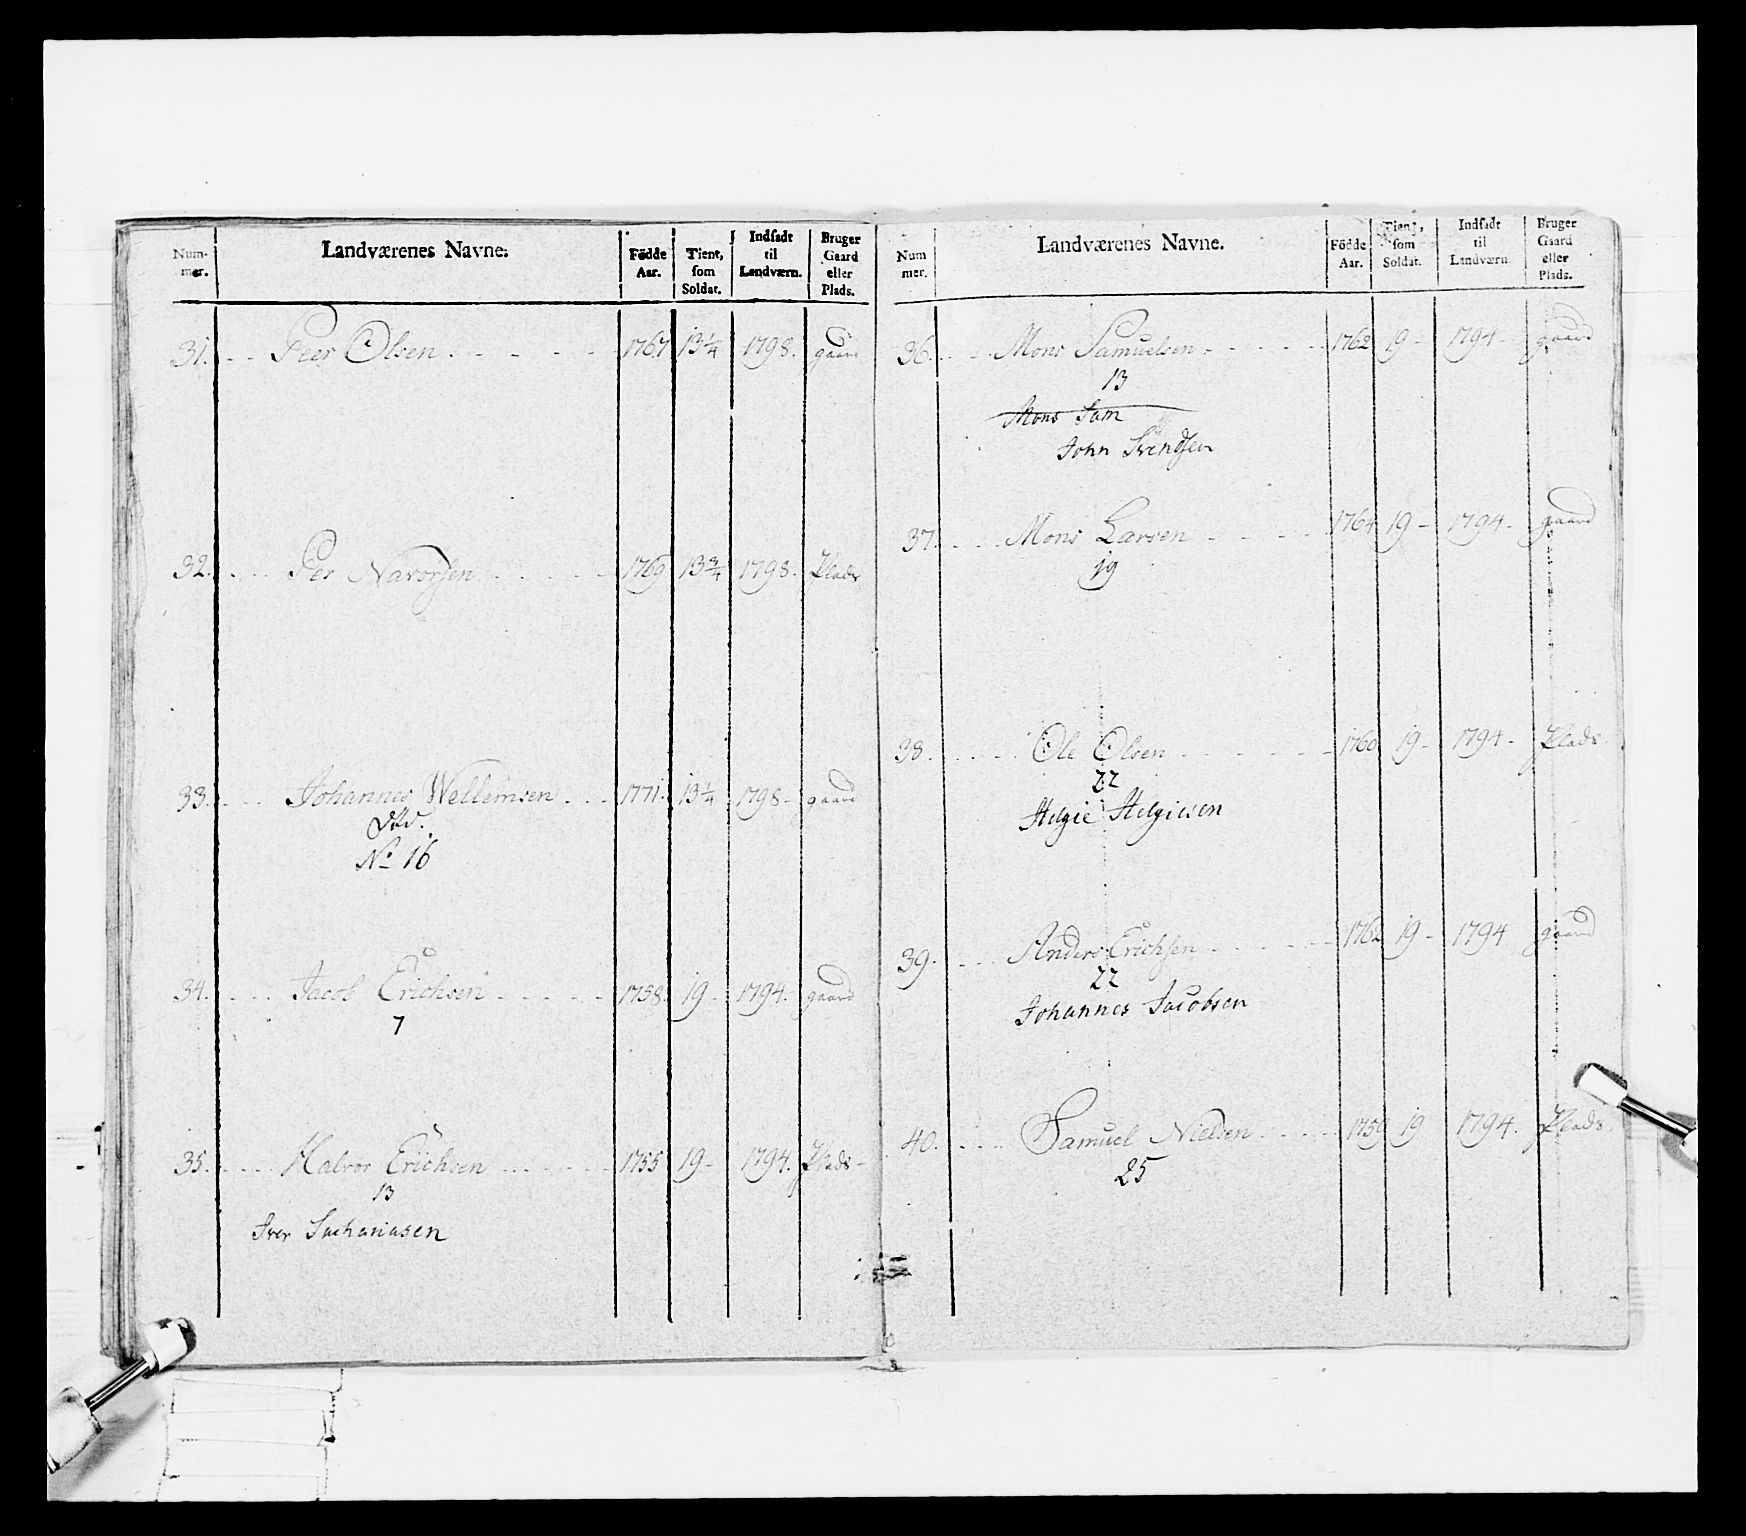 Num-mer. Landværenes Navne: Födde Aar. Tient, som Soldat. Indsadt til Landværn. Bruger Gaard eller Plads.
31. Peer Olsen 1767 13 1/4 1798. gaard
32. Per Navorsen 1769 13 3/4 1798. Plads
33. Johannes Wellemsen 1771. 13 1/4 1798- gaard
Död.
No 16
34. Jacob Erichsen 1758. 19- 1794. gaard
7
35. Halvor Erichsen 1755 19- 1794. Plads-
13
Iver Sachariasen
Num mer. Landværenes Navne. Födde Aar. Tient, som Soldat. Indsadt til Landværn. Bruger Gaard eller Plads.
36. Mons Samuelsen 1762 19- 1794- gaard
13
Mons Sam
John Svendsen
37. Mons Larsen 1764 19- 1794- gaard
19
38. Ole Olsen 1760 19- 1794- Plads.
22
Helgie Helgiesen
39. Anders Erichsen 1762 19- 1794 gaard
22
Johannes Jacobsen
40. Samuel Nielsen 1759 19 1794. Plads.
25